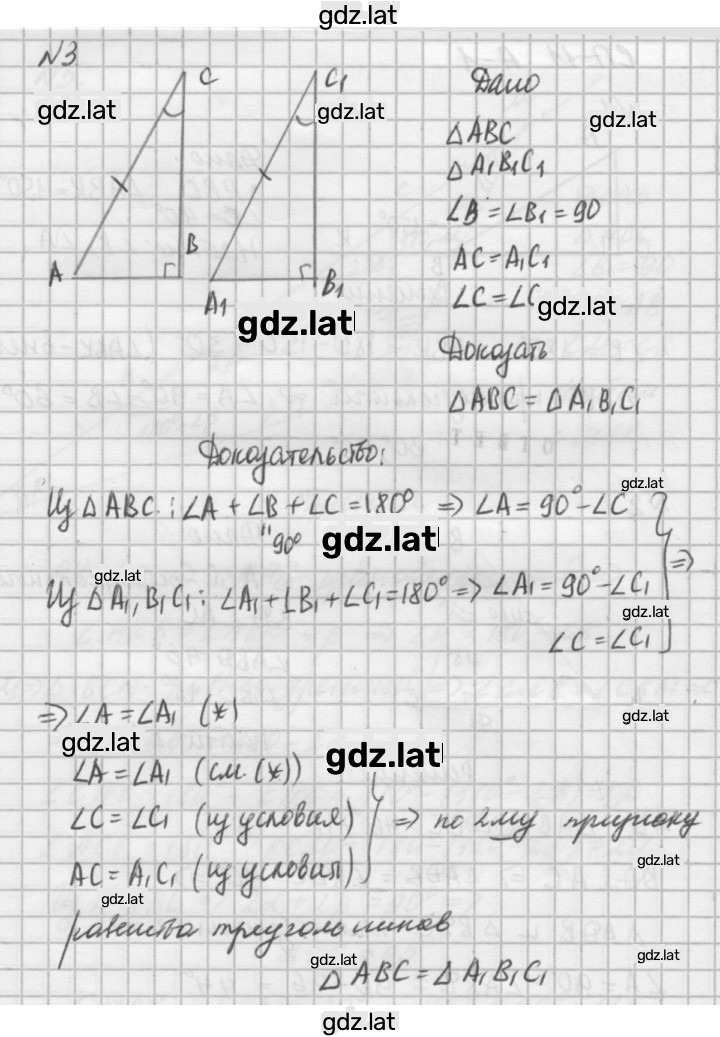 gdz.lat
N3
C
C1
Дано
gdz.lat
gdz.lat
gdz.lat
△ABC
△A1B1C1
∠B = ∠B1 = 90
B
AC = A1C1
A
A1
B1
∠C = ∠C
gdz.lat
gdz.lat
Доказать
△ABC = △A1B1C1
Доказательство:
gdz.lat
Из △ABC: ∠A + ∠B + ∠C = 180° ⇒ ∠A = 90° - ∠C
"90°
gdz.lat
⇒
gdz.lat
Из △A1B1C1: ∠A1 + ∠B1 + ∠C1 = 180° ⇒ ∠A1 = 90° - ∠C1
gdz.lat
∠C = ∠C1
⇒ ∠A = ∠A1 (*)
gdz.lat
gdz.lat
gdz.lat
∠A = ∠A1 (см. (*))
∠C = ∠C1 (из условия) ⇒ по 2му признаку
AC = A1C1 (из условия)
gdz.lat
gdz.lat
равенства треугольников
gdz.lat
gdz.lat
△ABC = △A1B1C1
gdz.lat